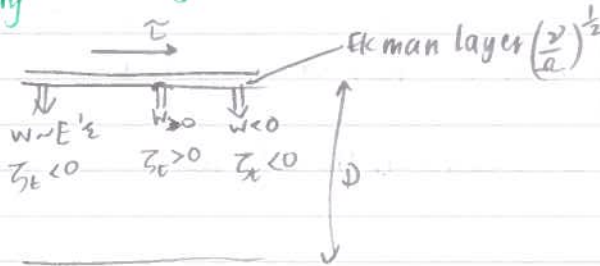 τ
Ekman layer (ν/Ω)^½
w~E^½ w>0 w<0
ζ_t<0 ζ_t>0 ζ_t<0
D